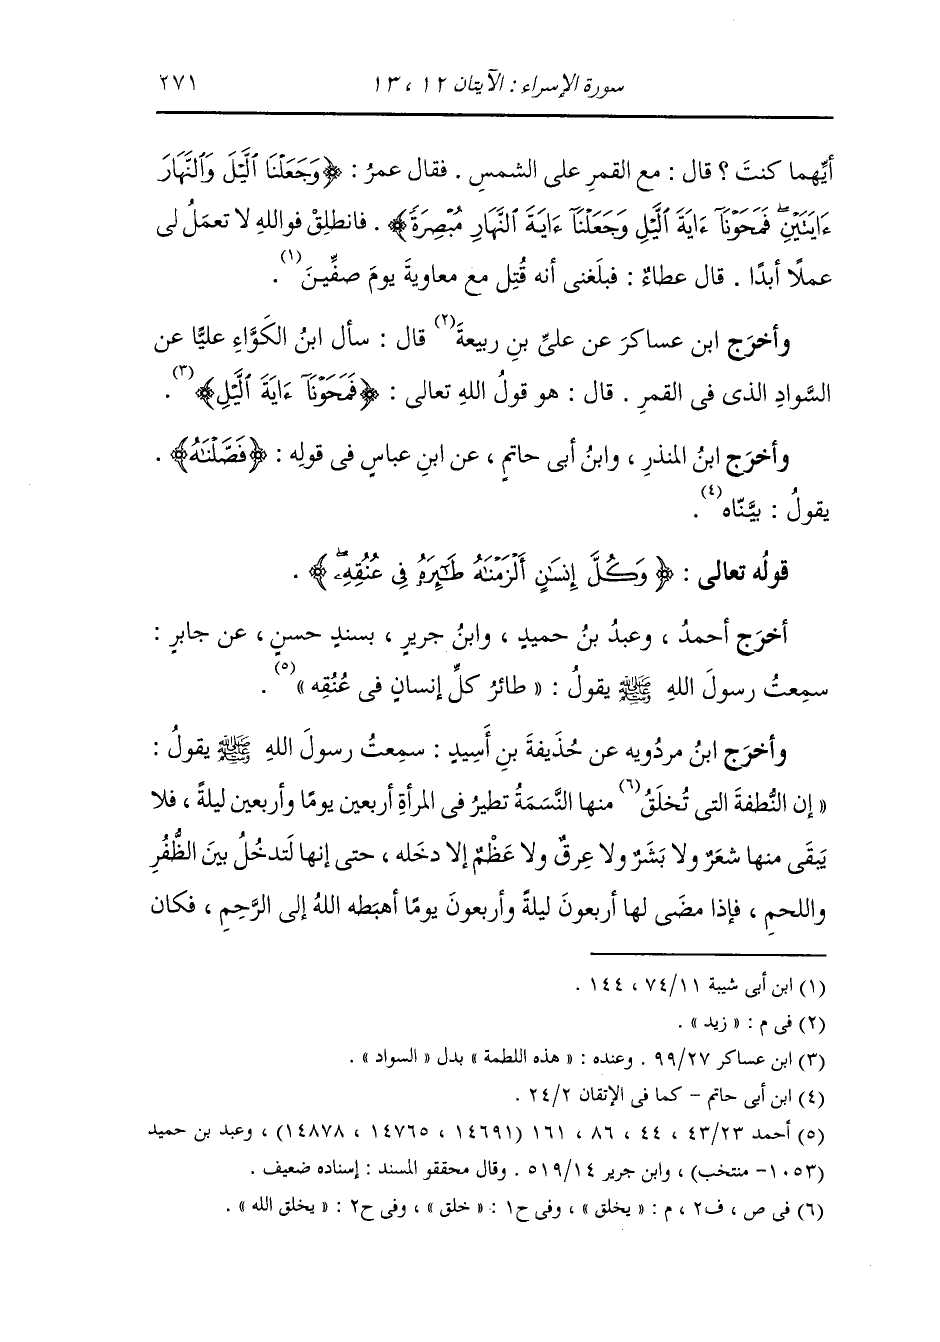 سورة الإسراء : الآيتان ١٢ ، ١٣
٢٧١
أيِّهما كنتَ ؟ قال : مع القمرِ على الشمسِ . فقال عمرُ : ﴿وَجَعَلْنَا ٱلَّيْلَ وَٱلنَّهَارَ
ءَايَتَيْنِۖ فَمَحَوْنَآ ءَايَةَ ٱلَّيْلِ وَجَعَلْنَآ ءَايَةَ ٱلنَّهَارِ مُبْصِرَةً﴾ . فانطلِقْ فواللهِ لا تعمَلُ لى
عملًا أبدًا . قال عطاءٌ : فبلَغنى أنه قُتِل مع معاويةَ يومَ صفِّينَ(١) .
وأخرَج ابن عساكرَ عن علىِّ بنِ ربيعةَ(٢) قال : سأل ابنُ الكَوَّاءِ عليًّا عن
السَّوادِ الذى فى القمرِ . قال : هو قولُ اللهِ تعالى : ﴿فَمَحَوْنَآ ءَايَةَ ٱلَّيْلِ﴾(٣) .
وأخرَج ابنُ المنذرِ ، وابنُ أبى حاتمٍ ، عن ابنِ عباسٍ فى قولِه : ﴿فَصَّلْنَٰهُ﴾ .
يقولُ : بيَّنّاه(٤) .
قولُه تعالى : ﴿وَكُلَّ إِنسَٰنٍ أَلْزَمْنَٰهُ طَٰٓئِرَهُۥ فِى عُنُقِهِۦۖ﴾ .
أخرَج أحمدُ ، وعبدُ بنُ حميدٍ ، وابنُ جريرٍ ، بسندٍ حسنٍ ، عن جابرٍ :
سمِعتُ رسولَ اللهِ ﷺ يقولُ : « طائرُ كلِّ إنسانٍ فى عُنُقِه »(٥) .
وأخرَج ابنُ مردُويه عن حُذَيفةَ بنِ أَسِيدٍ : سمِعتُ رسولَ اللهِ ﷺ يقولُ :
« إن النُّطفةَ التى تُخلَقُ(٦) منها النَّسَمَةُ تطيرُ فى المرأةِ أربعين يومًا وأربعين ليلةً ، فلا
يَبقَى منها شعَرٌ ولا بَشَرٌ ولا عِرقٌ ولا عَظْمٌ إلا دخَله ، حتى إنها لَتدخُلُ بينَ الظُّفُرِ
واللحمِ ، فإذا مضَى لها أربعونَ ليلةً وأربعونَ يومًا أهبَطه اللهُ إلى الرَّحِمِ ، فكان
(١) ابن أبى شيبة ٧٤/١١ ، ١٤٤ .
(٢) فى م : « زيد » .
(٣) ابن عساكر ٩٩/٢٧ . وعنده : « هذه اللطمة » بدل « السواد » .
(٤) ابن أبى حاتم – كما فى الإتقان ٢٤/٢ .
(٥) أحمد ٤٣/٢٣ ، ٤٤ ، ٨٦ ، ١٦١ (١٤٦٩١ ، ١٤٧٦٥ ، ١٤٨٧٨) ، وعبد بن حميد
(١٠٥٣- منتخب) ، وابن جرير ٥١٩/١٤ . وقال محققو المسند : إسناده ضعيف .
(٦) فى ص ، ف٢ ، م : « يخلق » ، وفى ح١ : « خلق » ، وفى ح٢ : « يخلق الله » .